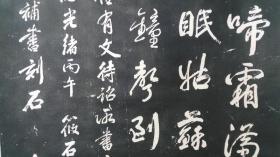 啼霜滿
眠姑蘇
鐘聲到
有文待詔所書
光緒丙午筱石
補書刻石